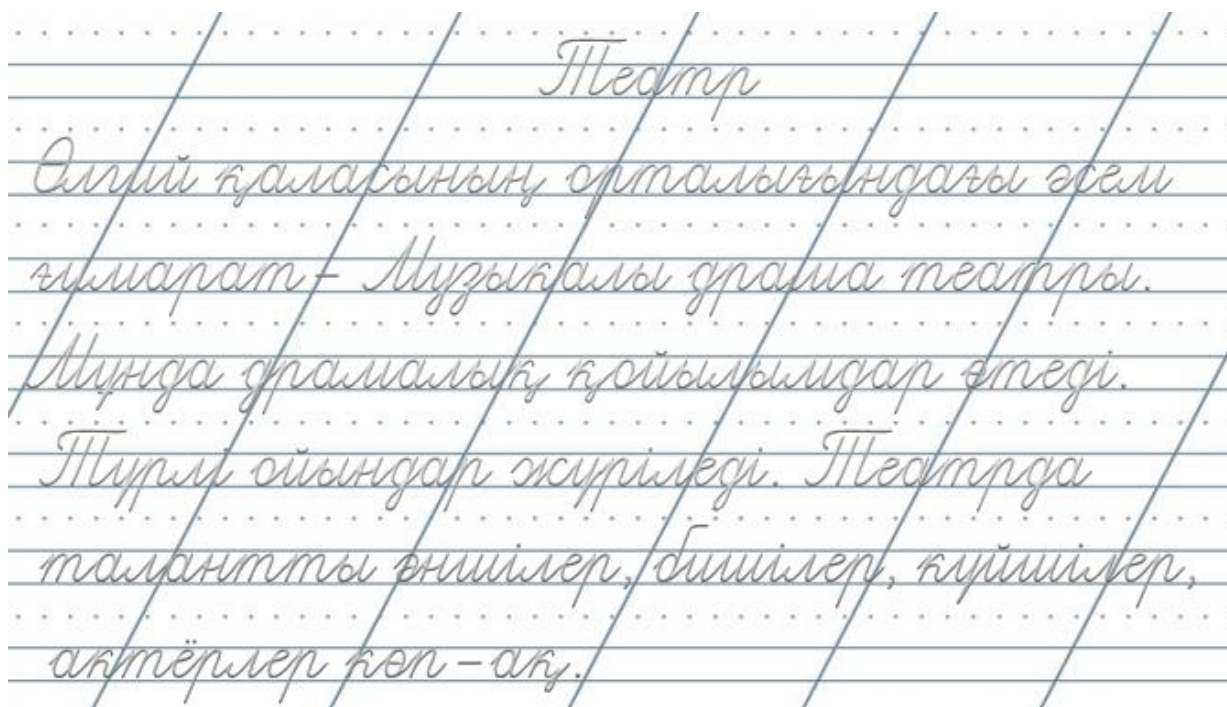 Театр
Өлгий қаласының орталығындағы әсем
ғимарат – Музыкалы драма театры.
Мұнда драмалық қойылымдар өтеді.
Түрлі ойындар жүріледі. Театрда
талантты әншілер, бишілер, күйшілер,
актёрлер көп – ақ.